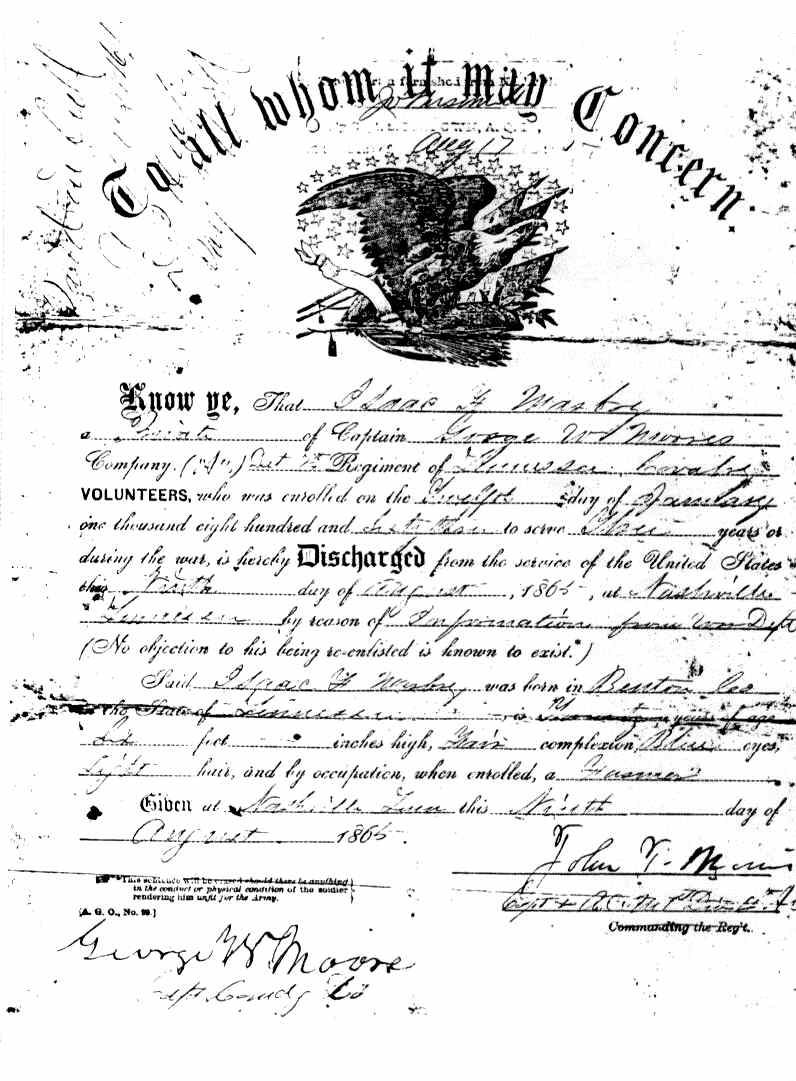 To all whom it may Concern.
Aug 17
Know ye, That Isaac F
a Private of Captain George W Moores
Company, ("A",) Regiment of Tennessee Cavalry
VOLUNTEERS, who was enrolled on the Twelfth day of January
one thousand eight hundred and to serve Three years or
during the war, is hereby Discharged from the service of the United States
this Ninth day of August, 1865, at Nashville
Tennessee by reason of Information from War Dept
(No objection to his being re-enlisted is known to exist.*)
Said Isaac F was born in Benton Coo
in the State of Tennessee, is years of age,
Six feet inches high, Fair complexion, Blue eyes,
Light hair, and by occupation, when enrolled, a Farmer
Given at Nashville Tenn this Ninth day of
August 1865.
*This sentence will be erased should there be anything
in the conduct or physical condition of the soldier
rendering him unfit for the Army.
[A. G. O., No. 99.]
John T.
Capt
Commanding the Reg't.
George W Moore
Capt Comdg Co